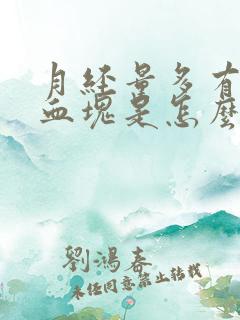 月經量多有
血塊是怎麼
劉鴻春
未經同意禁止轉載